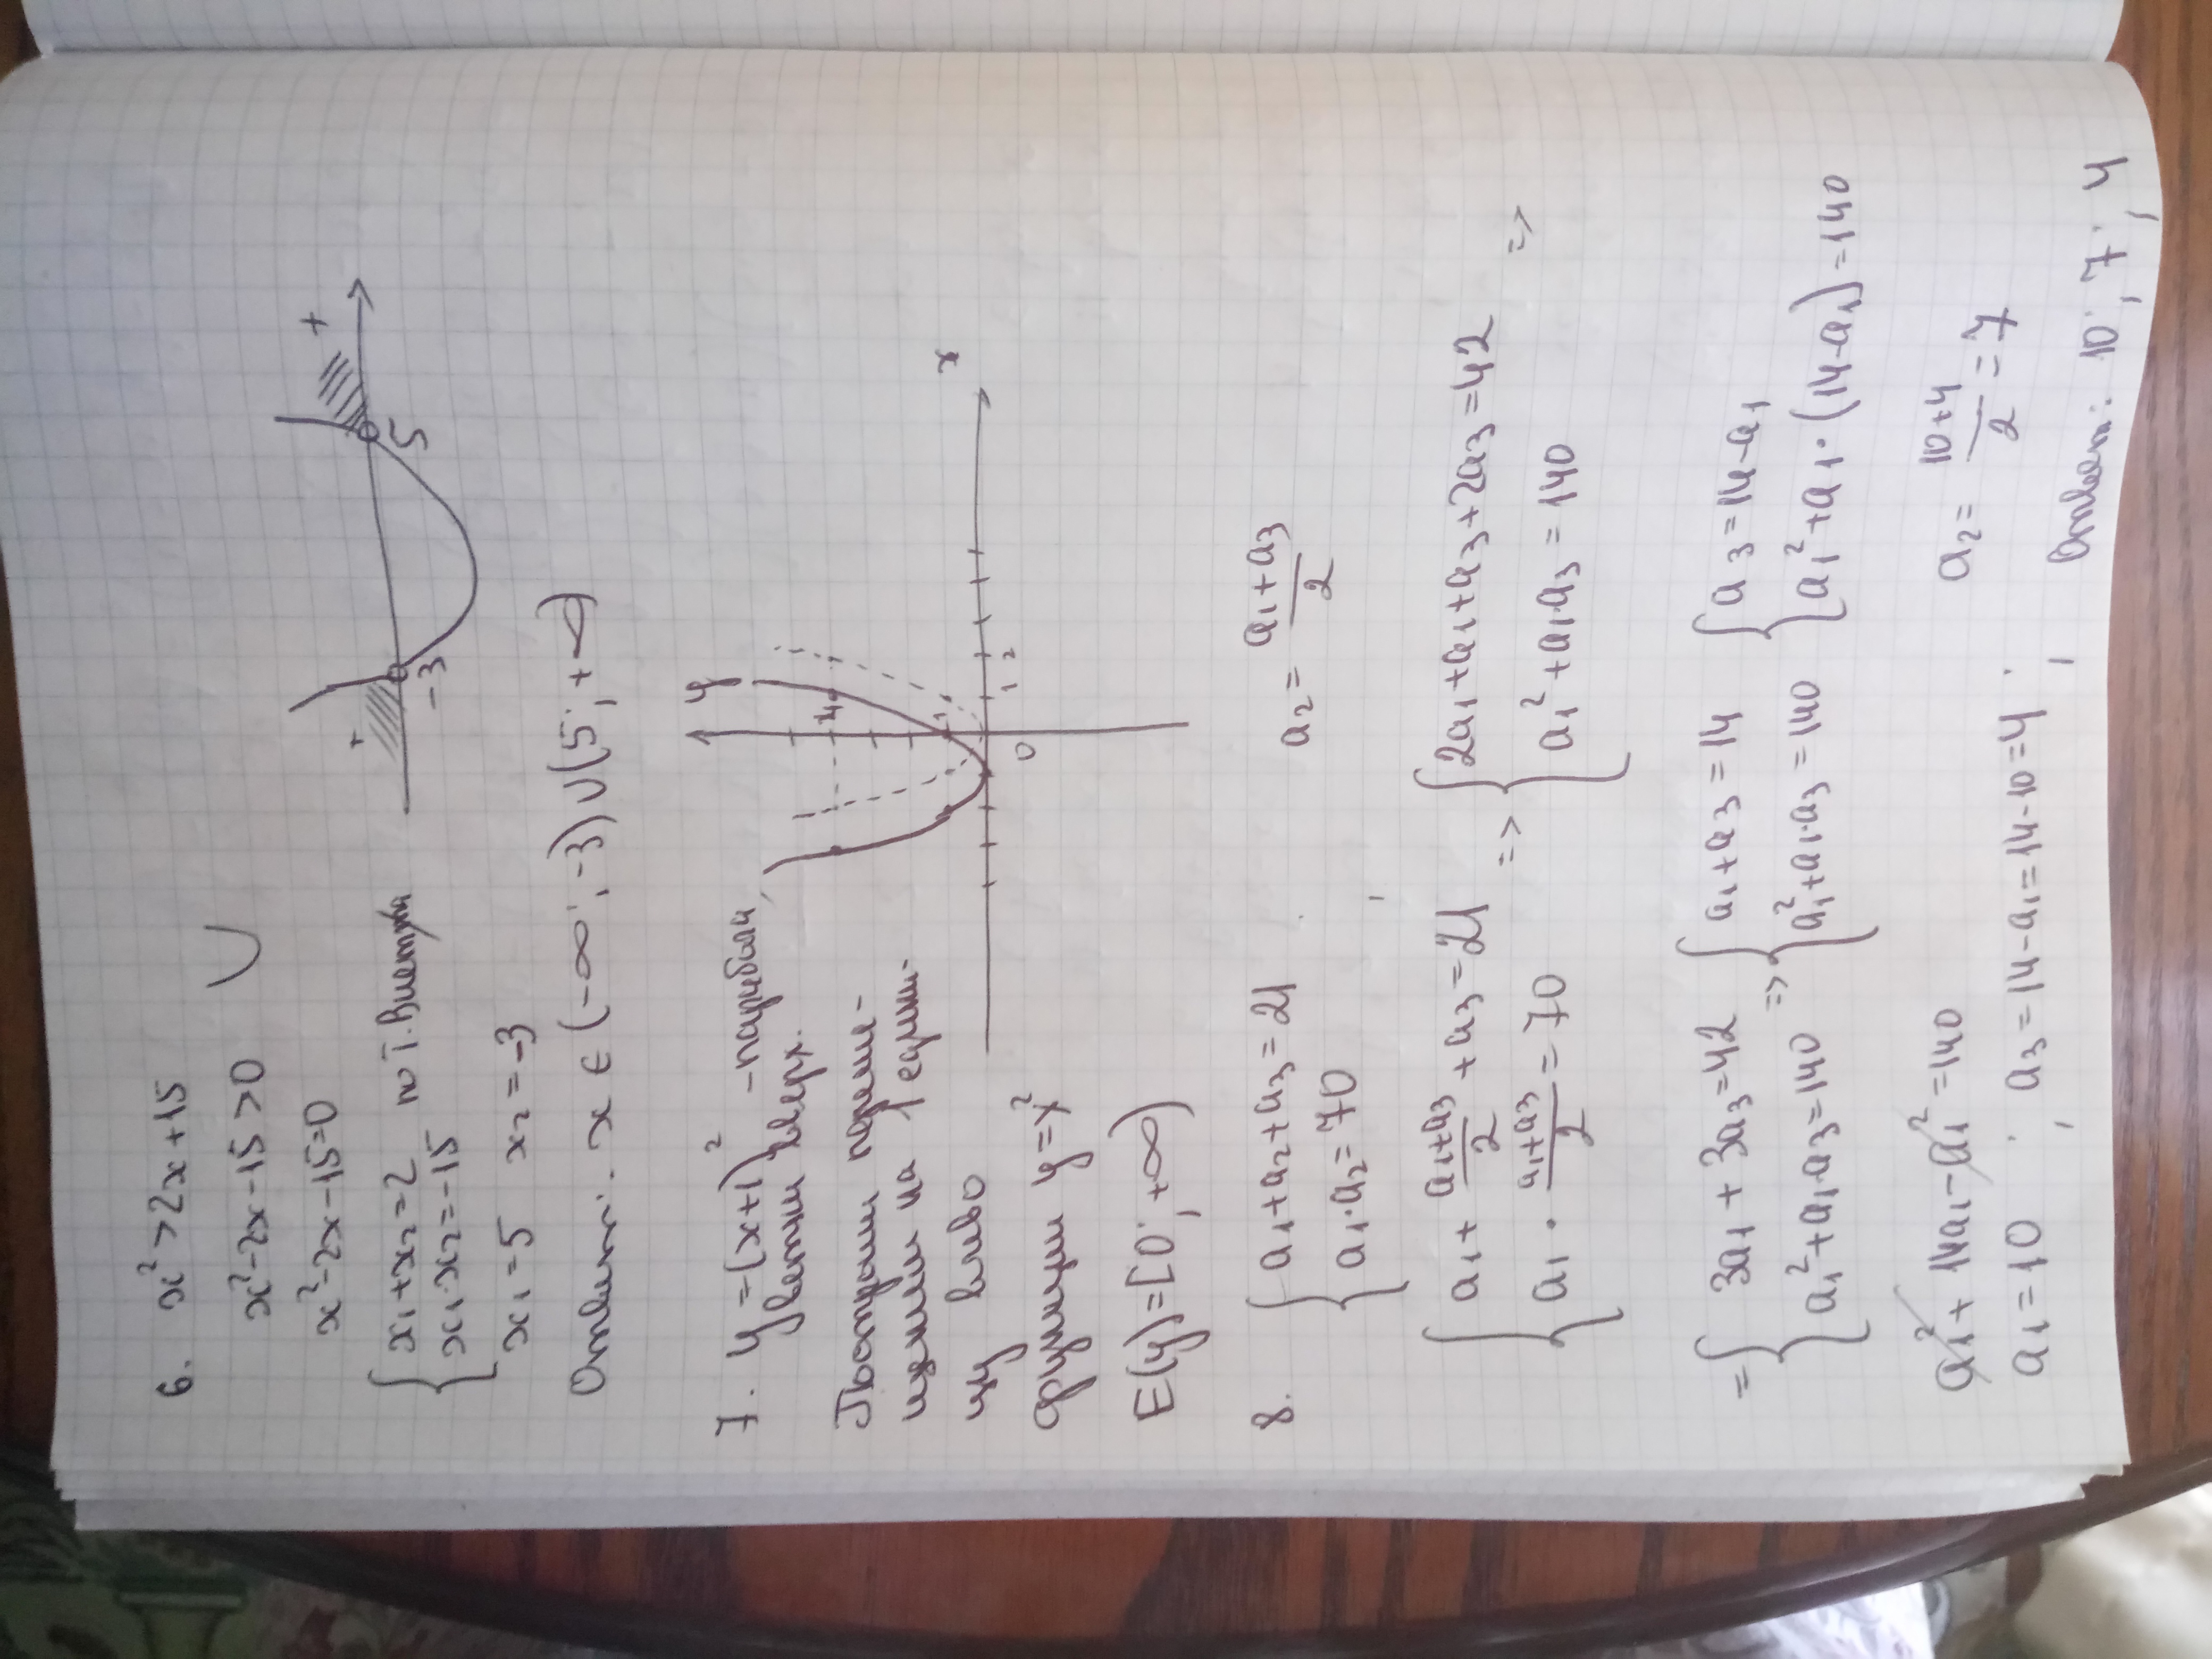 6. x² > 2x + 15
x² - 2x - 15 > 0
x² - 2x - 15 = 0
{ x₁ + x₂ = 2
x₁ · x₂ = -15
по т. Виета
x₁ = 5 x₂ = -3
+ -3 5 +
Ответ: x ∈ (-∞; -3) ∪ (5; +∞)
7. y = (x+1)² - парабола,
ветви вверх.
Построим
на 1 едини-
цу влево
функции y = x²
E(y) = [0; +∞)
y
4
1
0 1 2
x
8. { a₁ + a₂ + a₃ = 21
a₁ · a₂ = 70
a₂ = (a₁ + a₃)/2
{ a₁ + (a₁+a₃)/2 + a₃ = 21 => { 2a₁ + a₁ + a₃ + 2a₃ = 42 =>
a₁ · (a₁+a₃)/2 = 70 a₁² + a₁·a₃ = 140
= { 3a₁ + 3a₃ = 42 => { a₁ + a₃ = 14 { a₃ = 14 - a₁
a₁² + a₁·a₃ = 140 a₁² + a₁·a₃ = 140 ; a₁² + a₁·(14-a₁) = 140
a₁² + 14a₁ - a₁² = 140
a₁ = 10 ; a₃ = 14 - a₁ = 14 - 10 = 4 ; a₂ = (10+4)/2 = 7
Ответ: 10; 7; 4